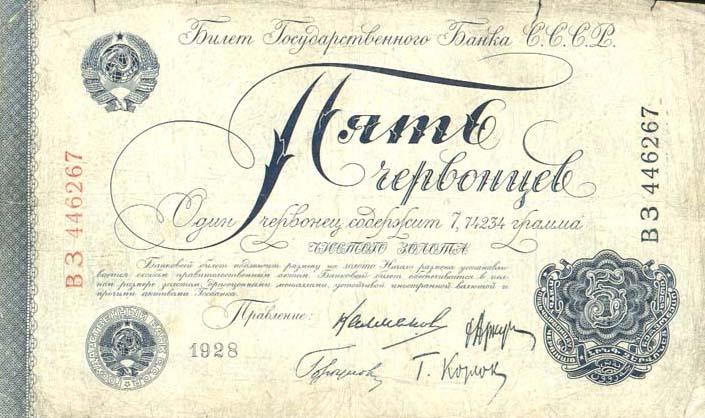 Билет Государственного Банка С.С.С.Р.
Пять
червонцев
Один червонец содержит 7,74234 грамма
ЧИСТОГО ЗОЛОТА
Банковый билет подлежит размену на золото. Начало размена устанавли-
вается особым правительственным актом. Банковый билет обеспечивается в пол-
ном размере золотом, драгоценными металлами, устойчивой иностранной валютой и
прочими активами Госбанка.
Правление:
1928
ВЗ 446267
ВЗ 446267
5